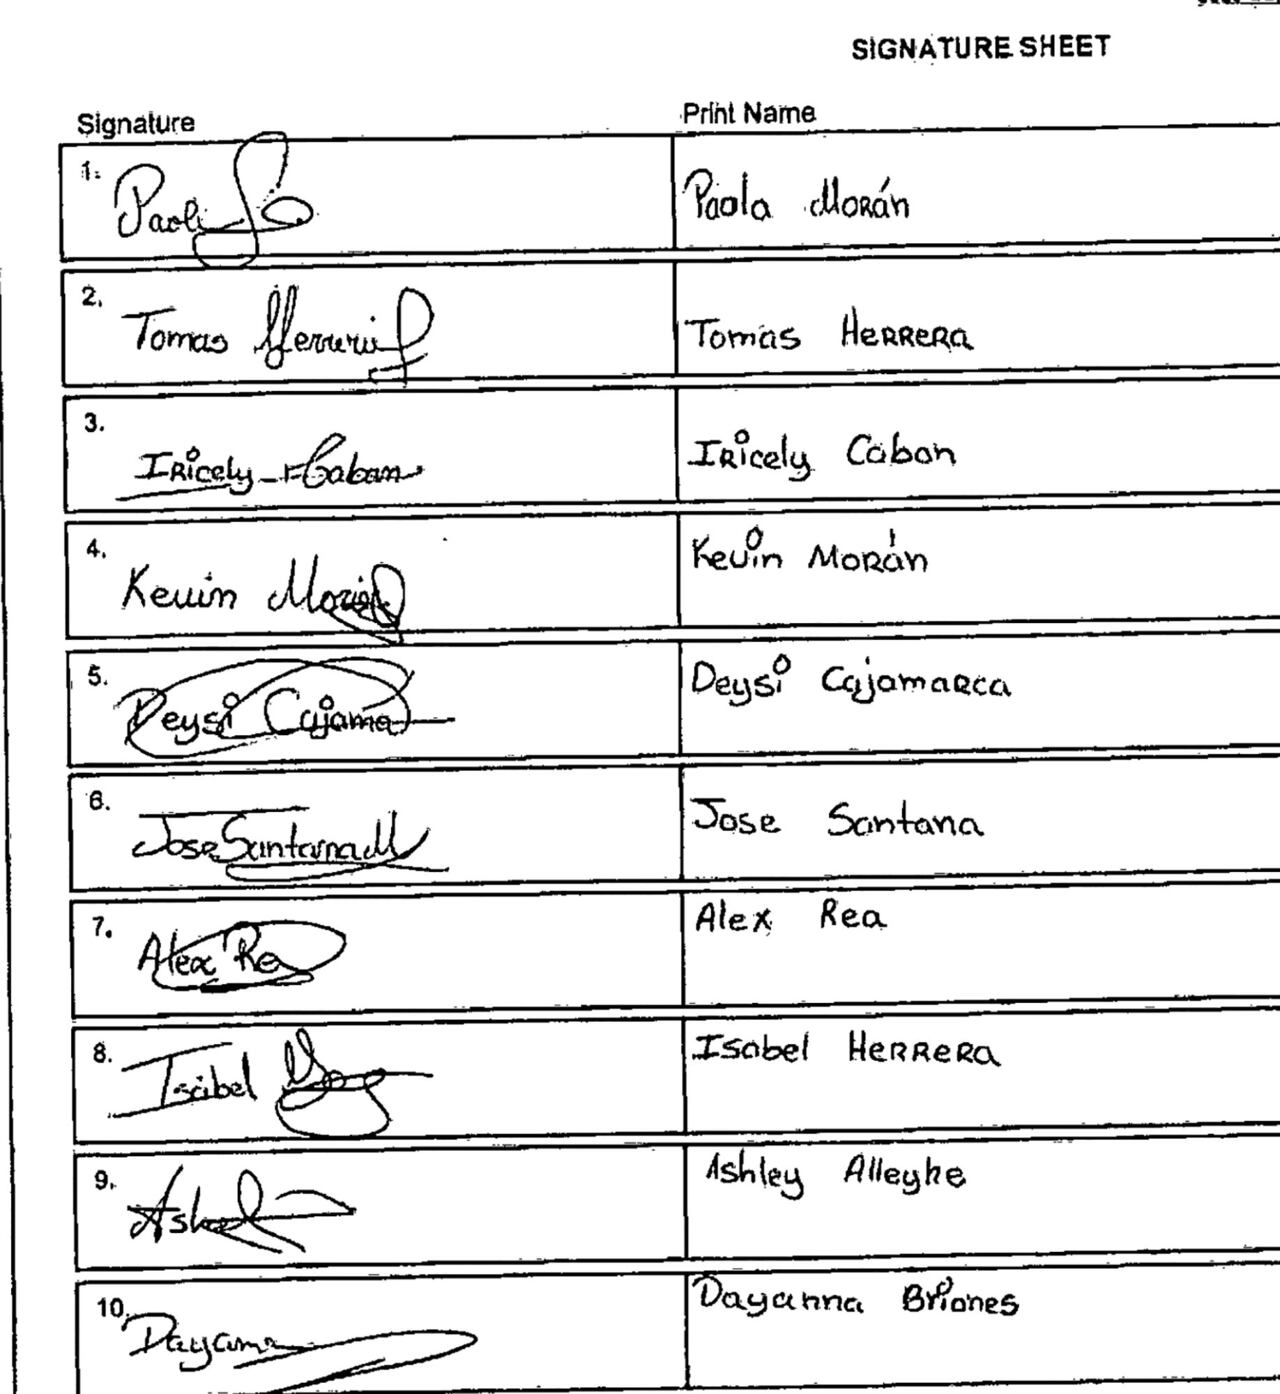 SIGNATURE SHEET
Signature Print Name
1. Paola Morán
2. Tomas Tomas HERRERA
3. Iricely Caban Iricely Cabon
4. Kevin Kevin MORán
5. Deysi Cajama Deysi Cajamarca
6. Jose Santana M Jose Santana
7. Alex Rea Alex Rea
8. Isabel Isabel HERRERA
9. Ashley Alleyne
10. Dayanna Briones